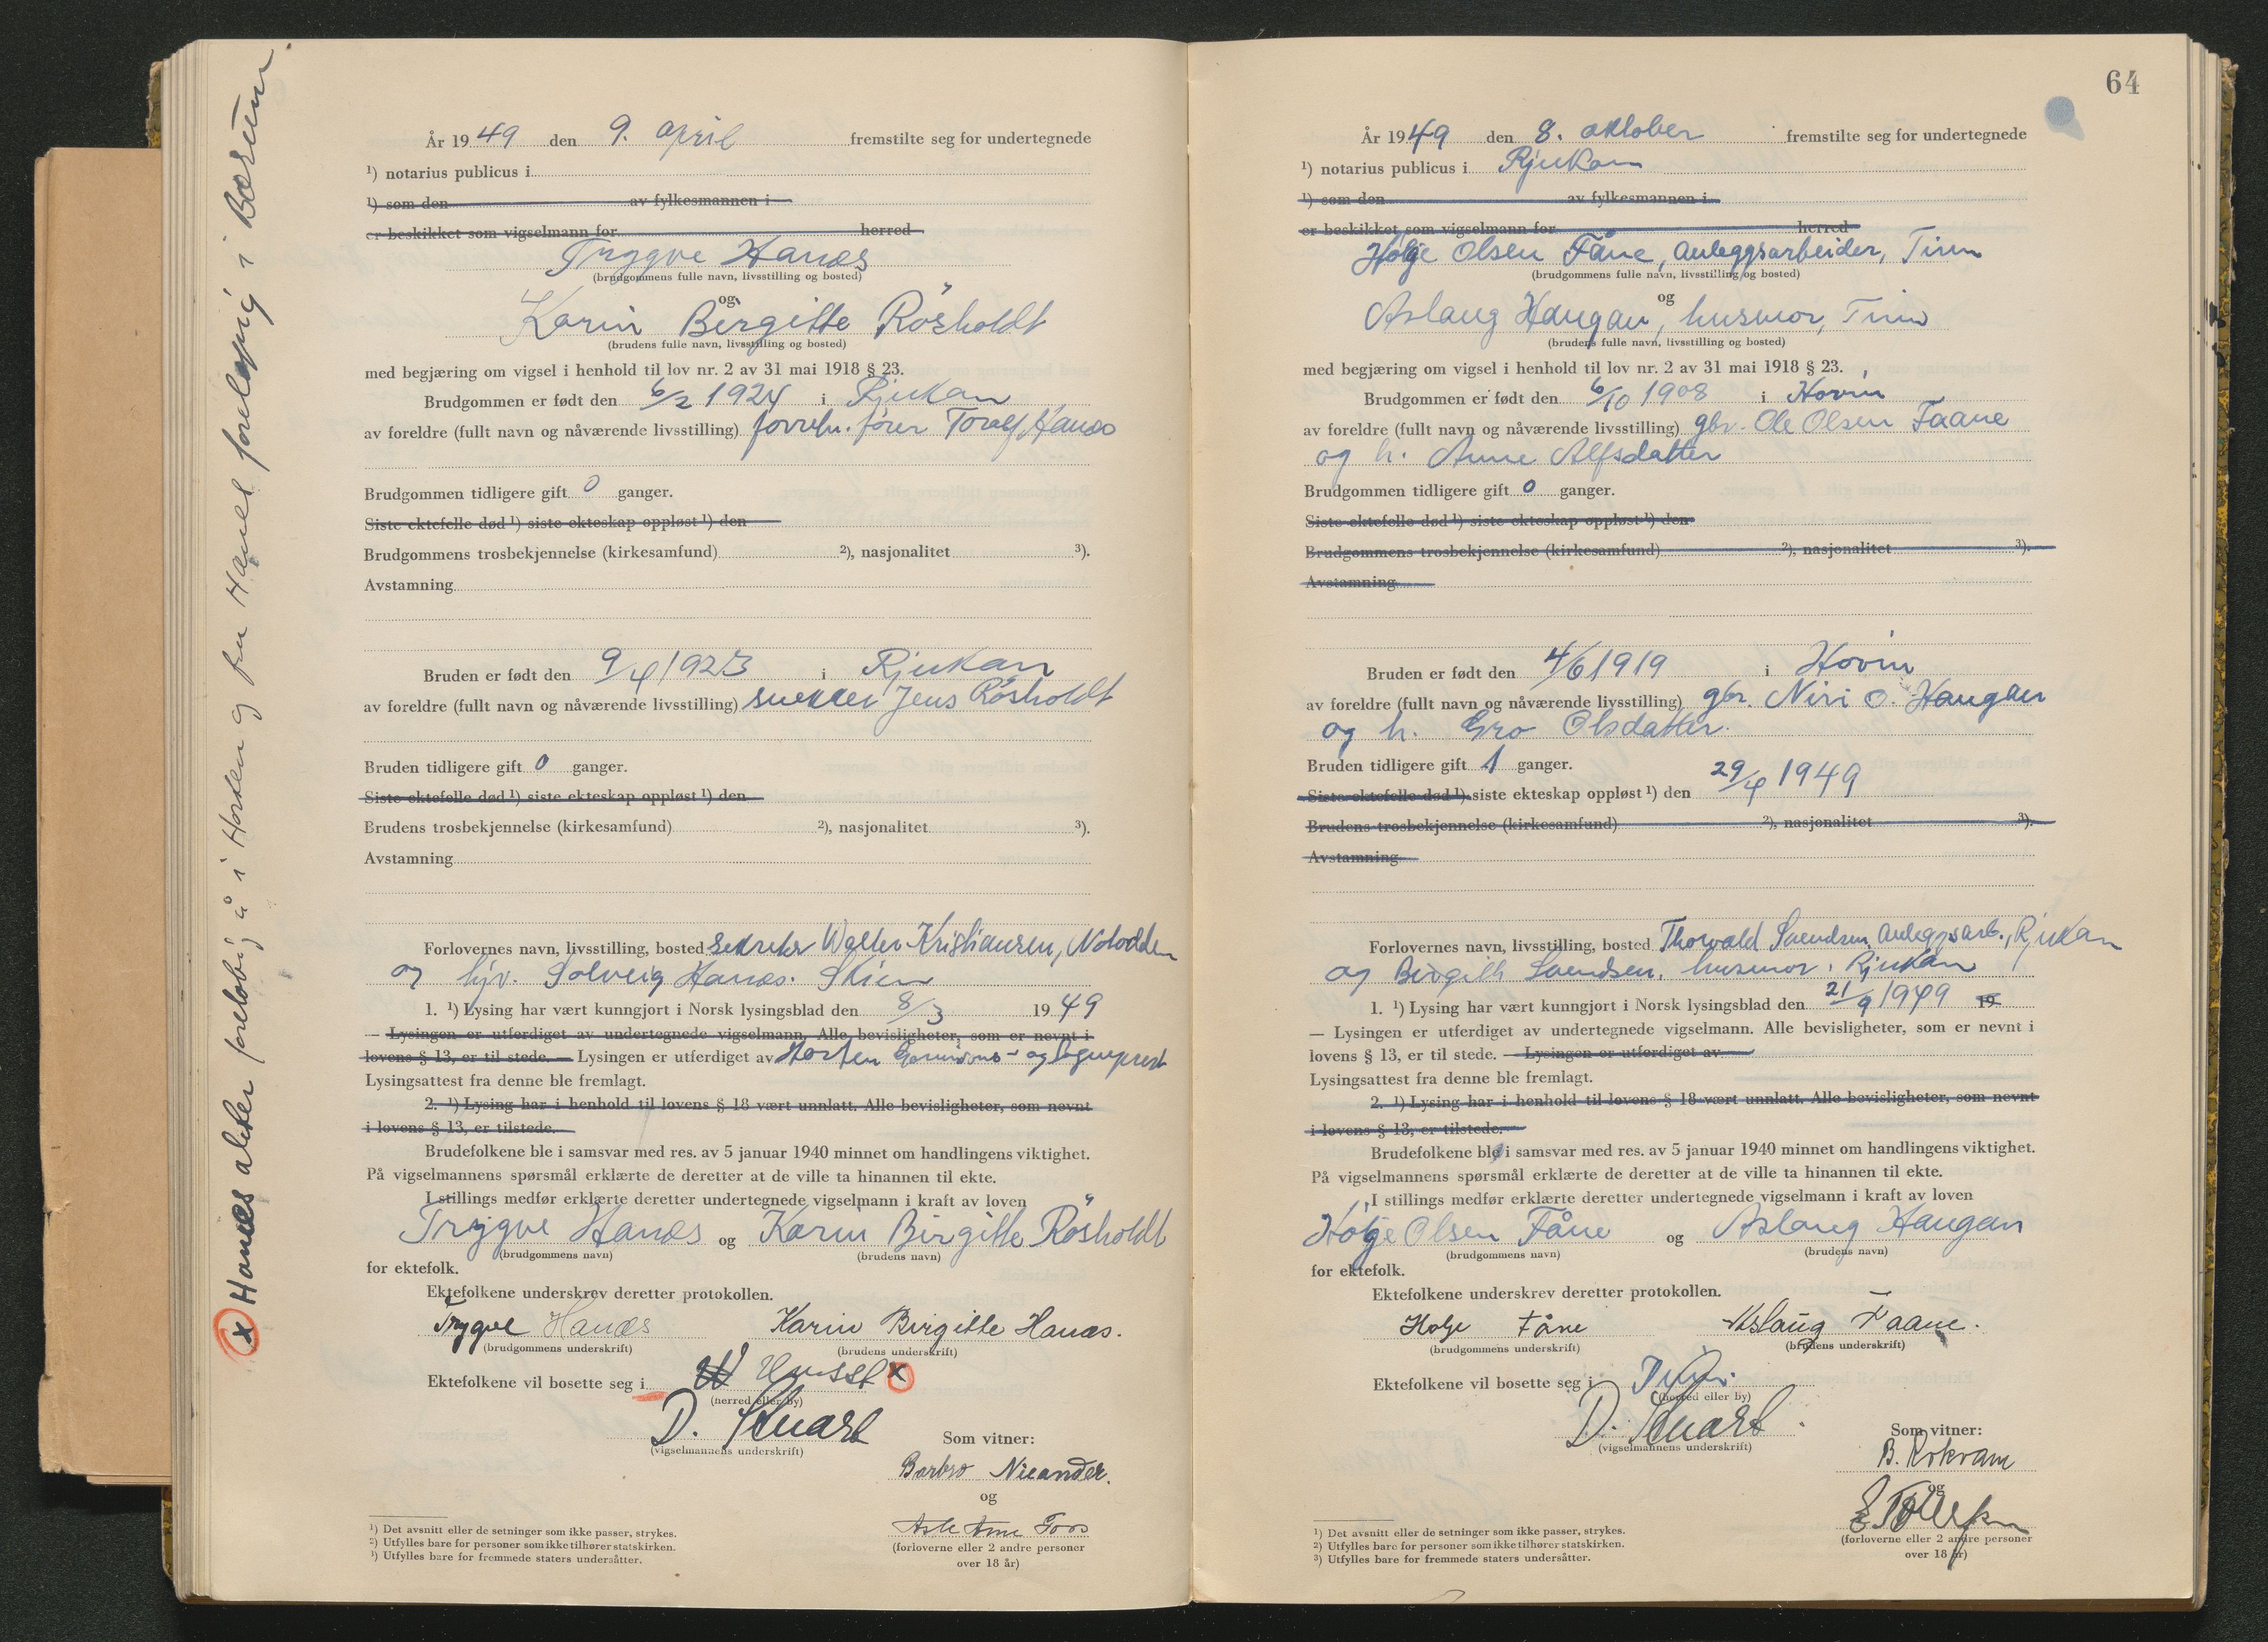 År 1949 den 9. april fremstilte seg for undertegnede
¹) notarius publicus i
¹) som den av fylkesmannen i
er beskikket som vigselmann for herred
Trygve Hanæs
(brudgommens fulle navn, livsstilling og bosted)
og
Karin Birgitte Rösholdt
(brudens fulle navn, livsstilling og bosted)
med begjæring om vigsel i henhold til lov nr. 2 av 31 mai 1918 § 23.
Brudgommen er født den 6/2 1924 i Rjukan
av foreldre (fullt navn og nåværende livsstilling) forretn. fører Toralf Hanæs
Brudgommen tidligere gift 0 ganger.
Siste ektefelle død ¹) siste ekteskap oppløst ¹) den
Brudgommens trosbekjennelse (kirkesamfund) ²), nasjonalitet ³).
Avstamning
Bruden er født den 9/4 1923 i Rjukan
av foreldre (fullt navn og nåværende livsstilling) snekker Jens Rösholdt
Bruden tidligere gift 0 ganger.
Siste ektefelle død ¹) siste ekteskap oppløst ¹) den
Brudens trosbekjennelse (kirkesamfund) ²), nasjonalitet ³).
Avstamning
Forlovernes navn, livsstilling, bosted sekretær Walter Kristiansen, Notodden
og hjv. Solveig Hanæs. Skien
1. ¹) Lysing har vært kunngjort i Norsk lysingsblad den 8/3 1949
— Lysingen er utferdiget av undertegnede vigselmann. Alle bevisligheter, som er nevnt i
lovens § 13, er til stede. — Lysingen er utferdiget av Horten Garnisons- og sogneprest
Lysingsattest fra denne ble fremlagt.
2. ¹) Lysing har i henhold til lovens § 18 vært unnlatt. Alle bevisligheter, som nevnt
i lovens § 13, er tilstede.
Brudefolkene ble i samsvar med res. av 5 januar 1940 minnet om handlingens viktighet.
På vigselmannens spørsmål erklærte de deretter at de ville ta hinannen til ekte.
I stillings medfør erklærte deretter undertegnede vigselmann i kraft av loven
Trygve Hanæs og Karin Birgitte Rösholdt
(brudgommens navn) (brudens navn)
for ektefolk.
Ektefolkene underskrev deretter protokollen.
Trygve Hanæs Karin Birgitte Hanæs.
(brudgommens underskrift) (brudens underskrift)
Ektefolkene vil bosette seg i x
(herred eller by)
D. Stuart
(vigselmannens underskrift)
Som vitner:
Barbro Nicander.
og
(forloverne eller 2 andre personer
over 18 år)
¹) Det avsnitt eller de setninger som ikke passer, strykes.
²) Utfylles bare for personer som ikke tilhører statskirken.
³) Utfylles bare for fremmede staters undersåtter.
x Hanæs akter foreløbig å i Horten og fru Hanæs foreløpig i Bærum.
64
År 1949 den 8. oktober fremstilte seg for undertegnede
¹) notarius publicus i Rjukan
¹) som den av fylkesmannen i
er beskikket som vigselmann for herred
Holje Olsen Fåne, anleggsarbeider, Tinn
(brudgommens fulle navn, livsstilling og bosted)
og
Aslaug Haugan, husmor, Tinn
(brudens fulle navn, livsstilling og bosted)
med begjæring om vigsel i henhold til lov nr. 2 av 31 mai 1918 § 23.
Brudgommen er født den 6/10 1908 i Hovin
av foreldre (fullt navn og nåværende livsstilling) gbr. Ole Olsen Faane
og h. Anne Alfsdatter
Brudgommen tidligere gift 0 ganger.
Siste ektefelle død ¹) siste ekteskap oppløst ¹) den
Brudgommens trosbekjennelse (kirkesamfund) ²), nasjonalitet ³).
Avstamning
Bruden er født den 4/6 1919 i Hovin
av foreldre (fullt navn og nåværende livsstilling) gbr. Niri O. Haugan
og h. Gro Olsdatter.
Bruden tidligere gift 1 ganger.
Siste ektefelle død ¹) siste ekteskap oppløst ¹) den 29/4 1949
Brudens trosbekjennelse (kirkesamfund) ²), nasjonalitet ³).
Avstamning
Forlovernes navn, livsstilling, bosted Thorvald Svendsen, anleggsarb., Rjukan
og Birgith Svendsen, husmor, Rjukan
1. ¹) Lysing har vært kunngjort i Norsk lysingsblad den 21/9 1949 19
— Lysingen er utferdiget av undertegnede vigselmann. Alle bevisligheter, som er nevnt i
lovens § 13, er til stede. — Lysingen er utferdiget av
Lysingsattest fra denne ble fremlagt.
2. ¹) Lysing har i henhold til lovens § 18 vært unnlatt. Alle bevisligheter, som nevnt
i lovens § 13, er tilstede.
Brudefolkene ble i samsvar med res. av 5 januar 1940 minnet om handlingens viktighet.
På vigselmannens spørsmål erklærte de deretter at de ville ta hinannen til ekte.
I stillings medfør erklærte deretter undertegnede vigselmann i kraft av loven
Holje Olsen Fåne og Aslaug Haugan
(brudgommens navn) (brudens navn)
for ektefolk.
Ektefolkene underskrev deretter protokollen.
Holje Fåne Aslaug Faane.
(brudgommens underskrift) (brudens underskrift)
Ektefolkene vil bosette seg i Tinn.
(herred eller by)
D. Stuart
(vigselmannens underskrift)
Som vitner:
B. Rokvam
og
E. Tollefsen
(forloverne eller 2 andre personer
over 18 år)
¹) Det avsnitt eller de setninger som ikke passer, strykes.
²) Utfylles bare for personer som ikke tilhører statskirken.
³) Utfylles bare for fremmede staters undersåtter.